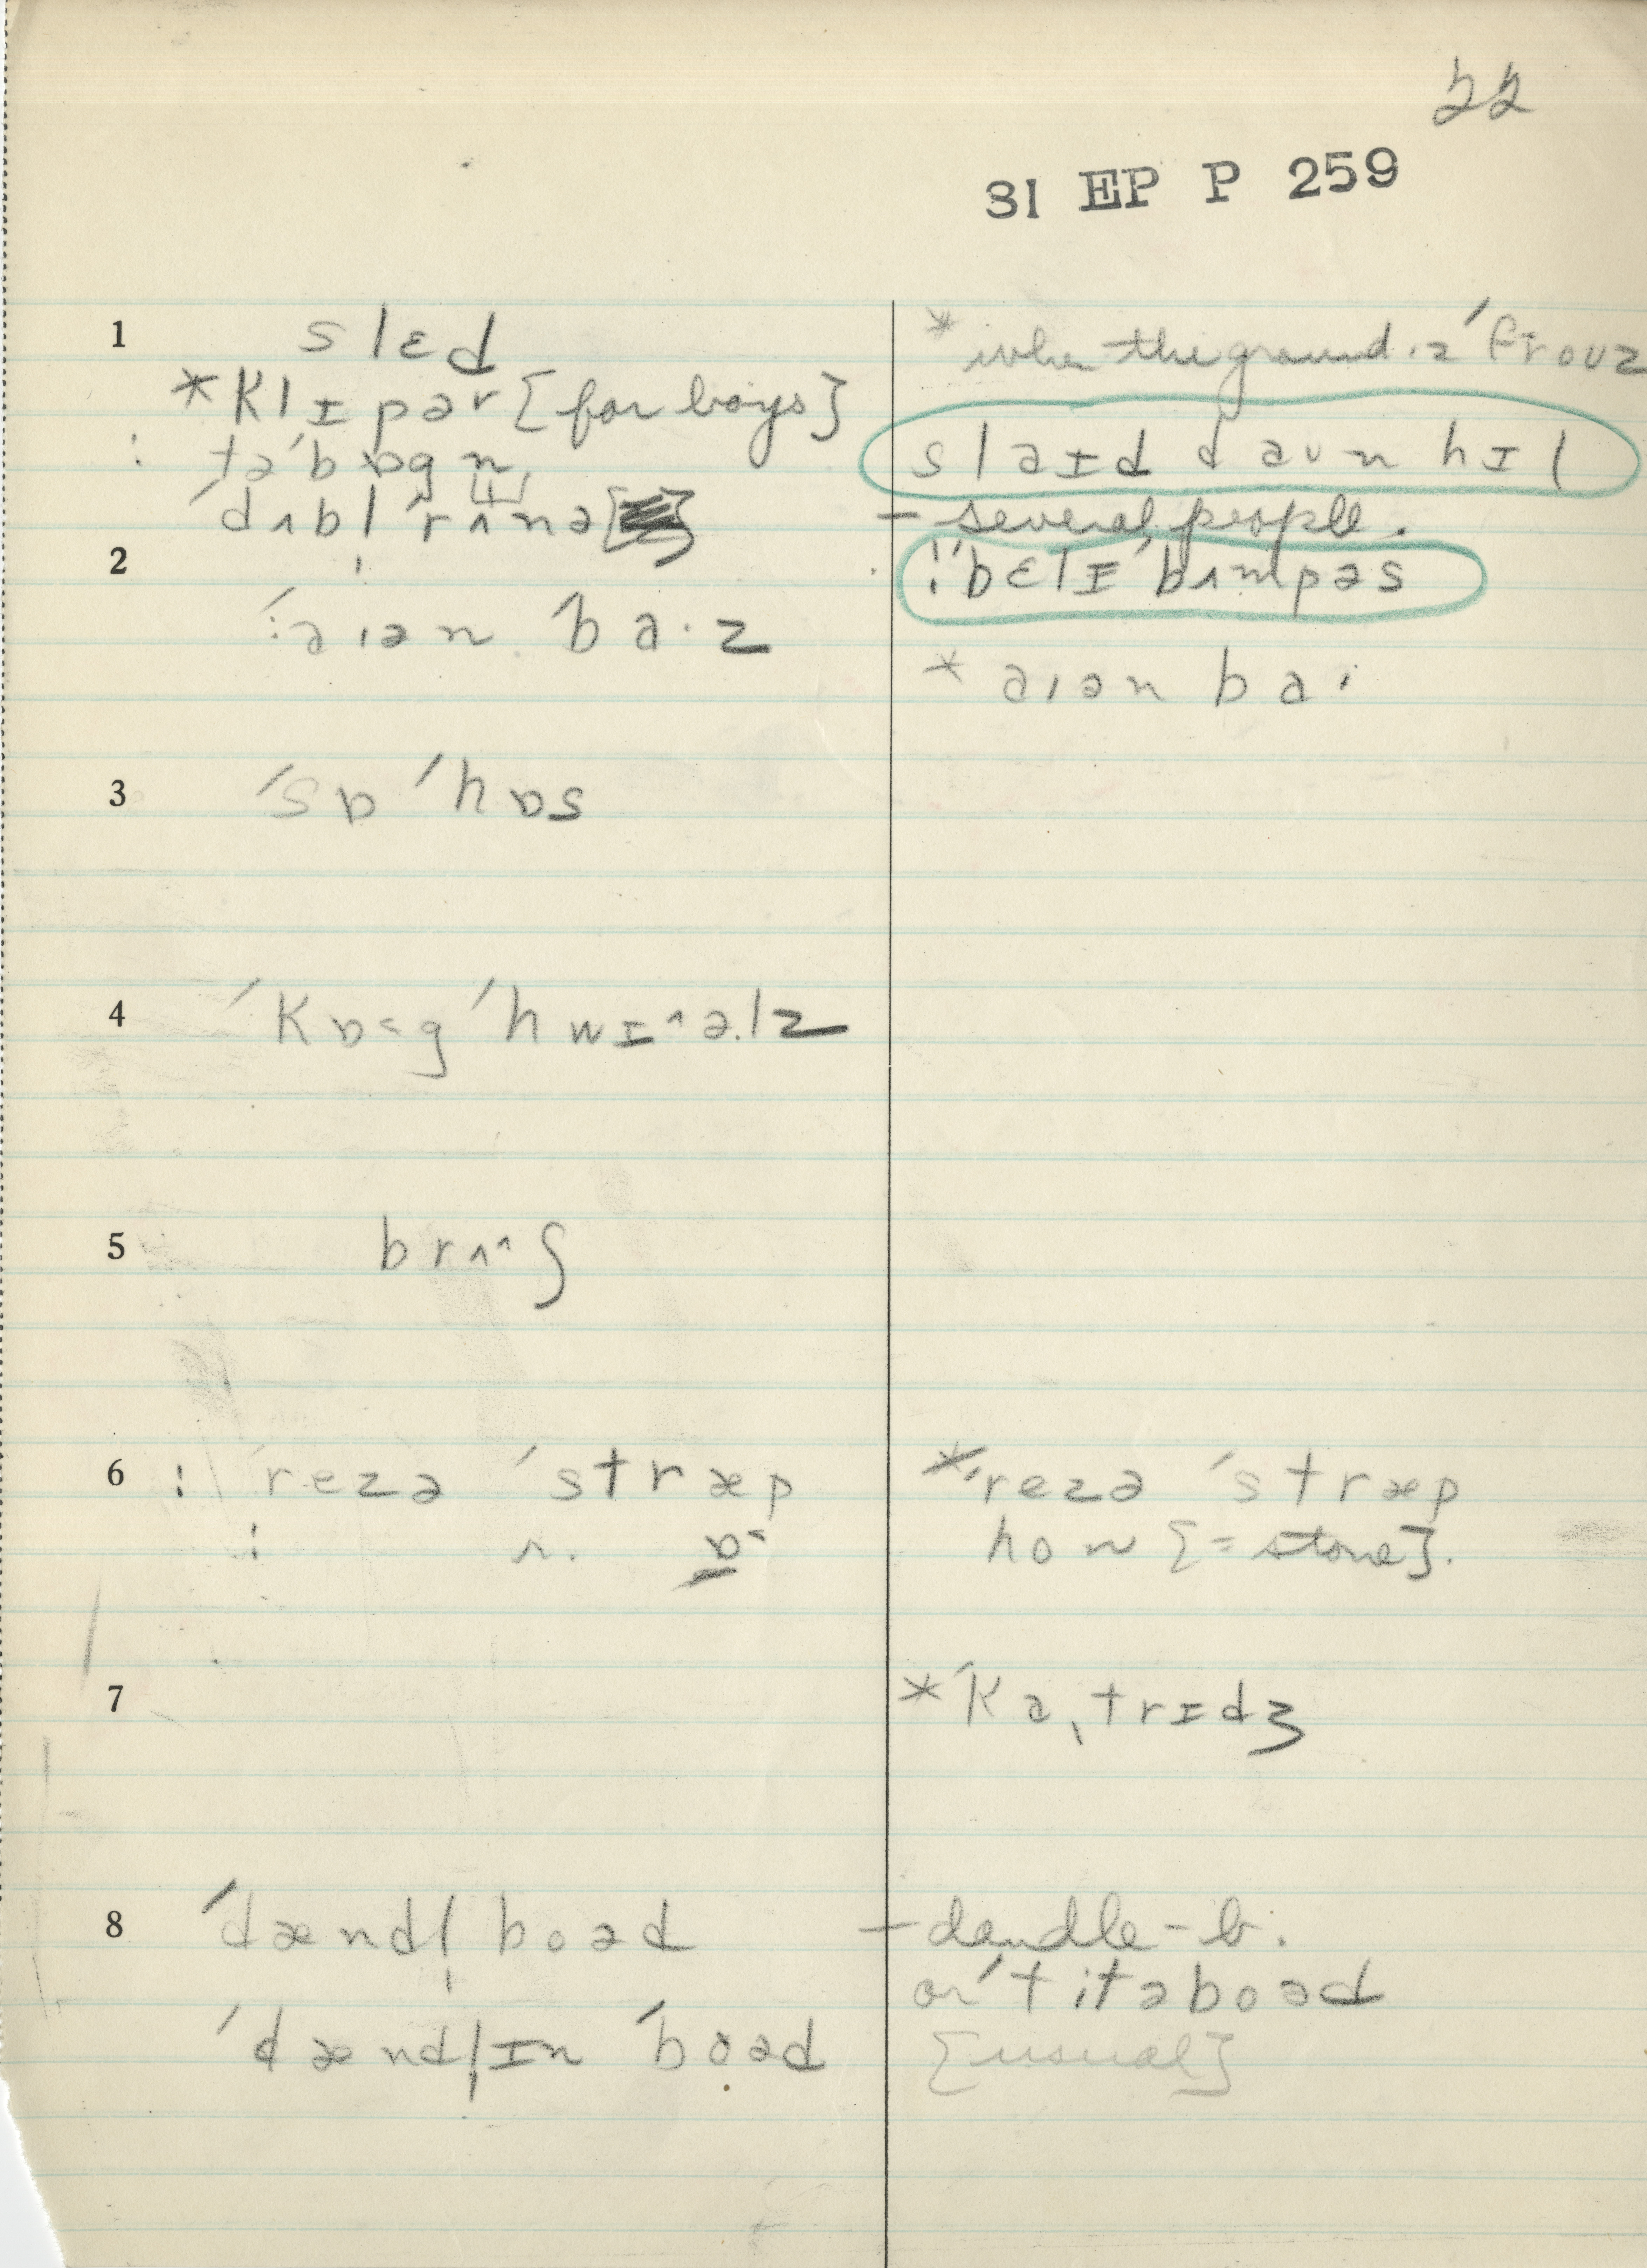 22
31 EP P 259
1 slɛd
*klɪpər [for boys]
: tə'bɒgn̩
'dʌbl̩ 'rʌnə
* when the ground is 'frouz
slaɪd daun hɪl
– several people.
⁝'bɛlɪ'bʌmpəs
2 '⁝aɪən 'ba·z
* aɪən ba·
3 'sɒ 'hɒs
4 'kɒ<g 'hwɪ^ə.lz
5 brʌ^ʃ
6 : 'rezə 'stræp
: r. ɒ<
*'rezə 'stræp
hon [= stone].
7 *'ka,trɪdʒ
8 'dændl̩ boəd
'dændl̩ɪn 'boəd
– dandle-b.
or 'titəboəd
[usual]